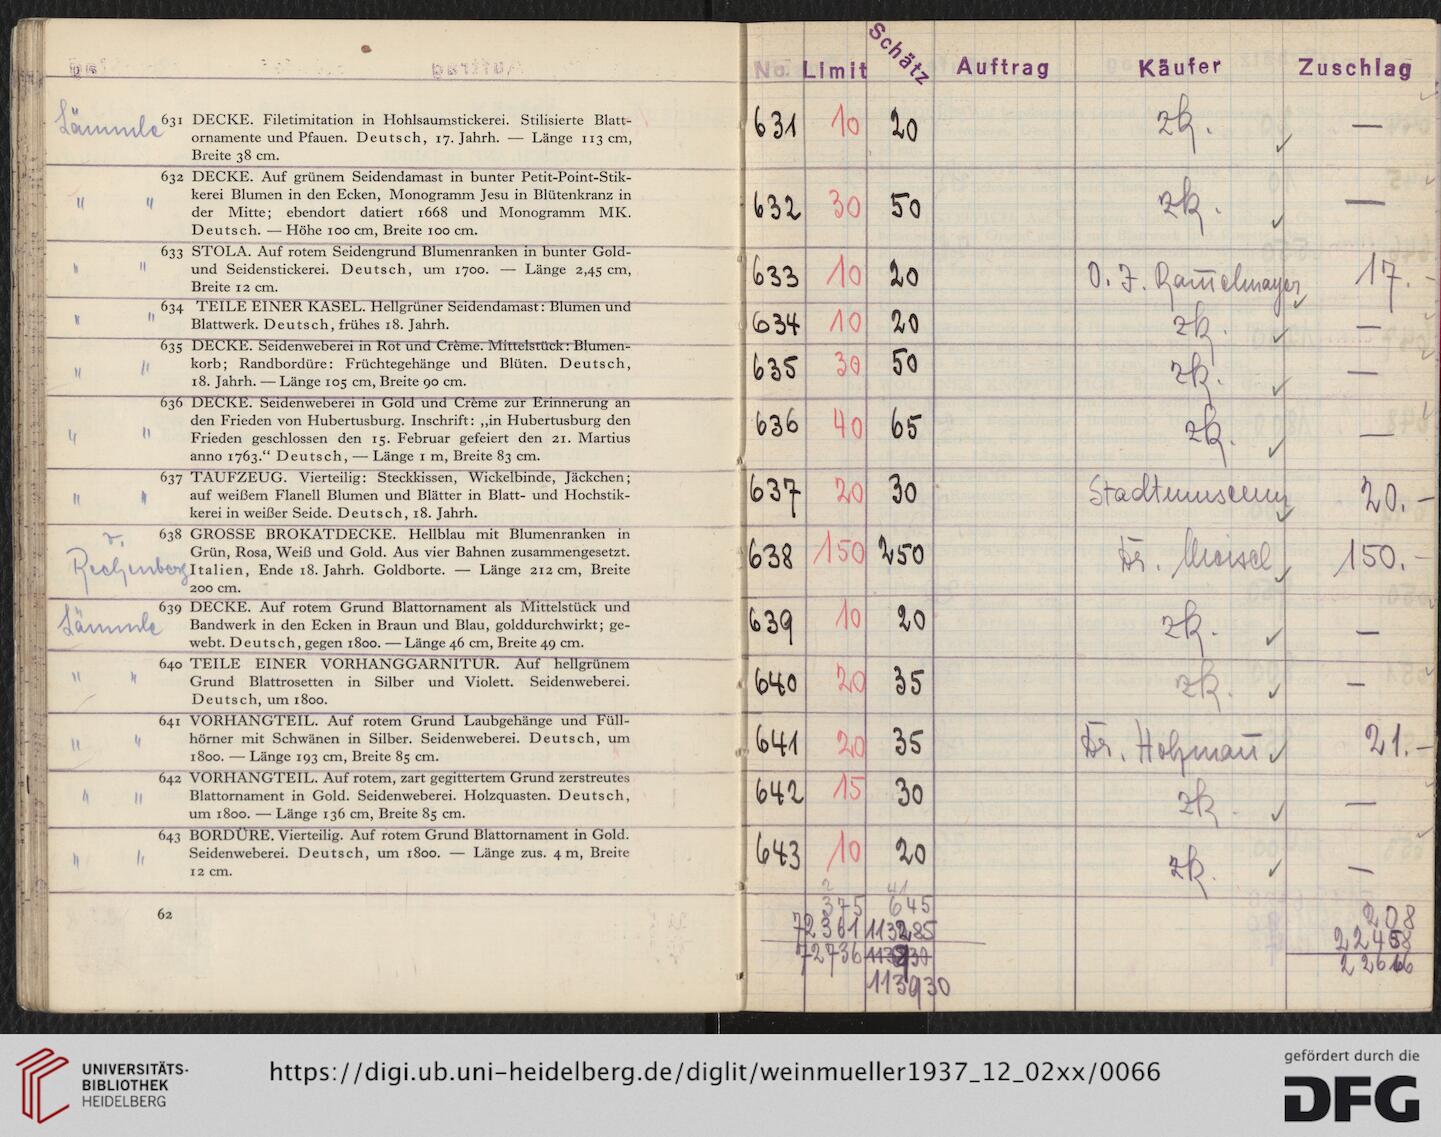 No. Limit Schätz Auftrag Käufer Zuschlag
Lämmle 631 DECKE. Filetimitation in Hohlsaumstickerei. Stilisierte Blatt-
ornamente und Pfauen. Deutsch, 17. Jahrh. — Länge 113 cm,
Breite 38 cm.
631 10 20 zk. ✓ —
632 DECKE. Auf grünem Seidendamast in bunter Petit-Point-Stik-
" " kerei Blumen in den Ecken, Monogramm Jesu in Blütenkranz in
der Mitte; ebendort datiert 1668 und Monogramm MK.
Deutsch. — Höhe 100 cm, Breite 100 cm.
632 30 50 zk. ✓ —
633 STOLA. Auf rotem Seidengrund Blumenranken in bunter Gold-
" " und Seidenstickerei. Deutsch, um 1700. — Länge 2,45 cm,
Breite 12 cm.
633 10 20 O. J. ✓ 17.-
634 TEILE EINER KASEL. Hellgrüner Seidendamast: Blumen und
" " Blattwerk. Deutsch, frühes 18. Jahrh.
634 10 20 zk. ✓ —
635 DECKE. Seidenweberei in Rot und Crème. Mittelstück: Blumen-
" " korb; Randbordüre: Früchtegehänge und Blüten. Deutsch,
18. Jahrh. — Länge 105 cm, Breite 90 cm.
635 30 50 zk. ✓ —
636 DECKE. Seidenweberei in Gold und Crème zur Erinnerung an
den Frieden von Hubertusburg. Inschrift: „in Hubertusburg den
" " Frieden geschlossen den 15. Februar gefeiert den 21. Martius
anno 1763.“ Deutsch, — Länge 1 m, Breite 83 cm.
636 40 65 zk. ✓ —
637 TAUFZEUG. Vierteilig: Steckkissen, Wickelbinde, Jäckchen;
" " auf weißem Flanell Blumen und Blätter in Blatt- und Hochstik-
kerei in weißer Seide. Deutsch, 18. Jahrh.
637 20 30 Stadtmuseum ✓ 20.-
v. 638 GROSSE BROKATDECKE. Hellblau mit Blumenranken in
Grün, Rosa, Weiß und Gold. Aus vier Bahnen zusammengesetzt.
Rechenberg Italien, Ende 18. Jahrh. Goldborte. — Länge 212 cm, Breite
200 cm.
638 150 250 Dr. Meisel ✓ 150.-
639 DECKE. Auf rotem Grund Blattornament als Mittelstück und
Lämmle Bandwerk in den Ecken in Braun und Blau, golddurchwirkt; ge-
webt. Deutsch, gegen 1800. — Länge 46 cm, Breite 49 cm.
639 10 20 zk. ✓ —
640 TEILE EINER VORHANGGARNITUR. Auf hellgrünem
" " Grund Blattrosetten in Silber und Violett. Seidenweberei.
Deutsch, um 1800.
640 20 35 zk. ✓ —
641 VORHANGTEIL. Auf rotem Grund Laubgehänge und Füll-
" " hörner mit Schwänen in Silber. Seidenweberei. Deutsch, um
1800. — Länge 193 cm, Breite 85 cm.
641 20 35 Dr. ✓ 21.-
642 VORHANGTEIL. Auf rotem, zart gegittertem Grund zerstreutes
" " Blattornament in Gold. Seidenweberei. Holzquasten. Deutsch,
um 1800. — Länge 136 cm, Breite 85 cm.
642 15 30 zk. ✓ —
643 BORDÜRE. Vierteilig. Auf rotem Grund Blattornament in Gold.
" " Seidenweberei. Deutsch, um 1800. — Länge zus. 4 m, Breite
12 cm.
643 10 20 zk. ✓ —
62
375 645 208
72361 113285 22458
72736 22666
113930
UNIVERSITÄTS-
BIBLIOTHEK
HEIDELBERG
https://digi.ub.uni-heidelberg.de/diglit/weinmueller1937_12_02xx/0066
gefördert durch die
DFG